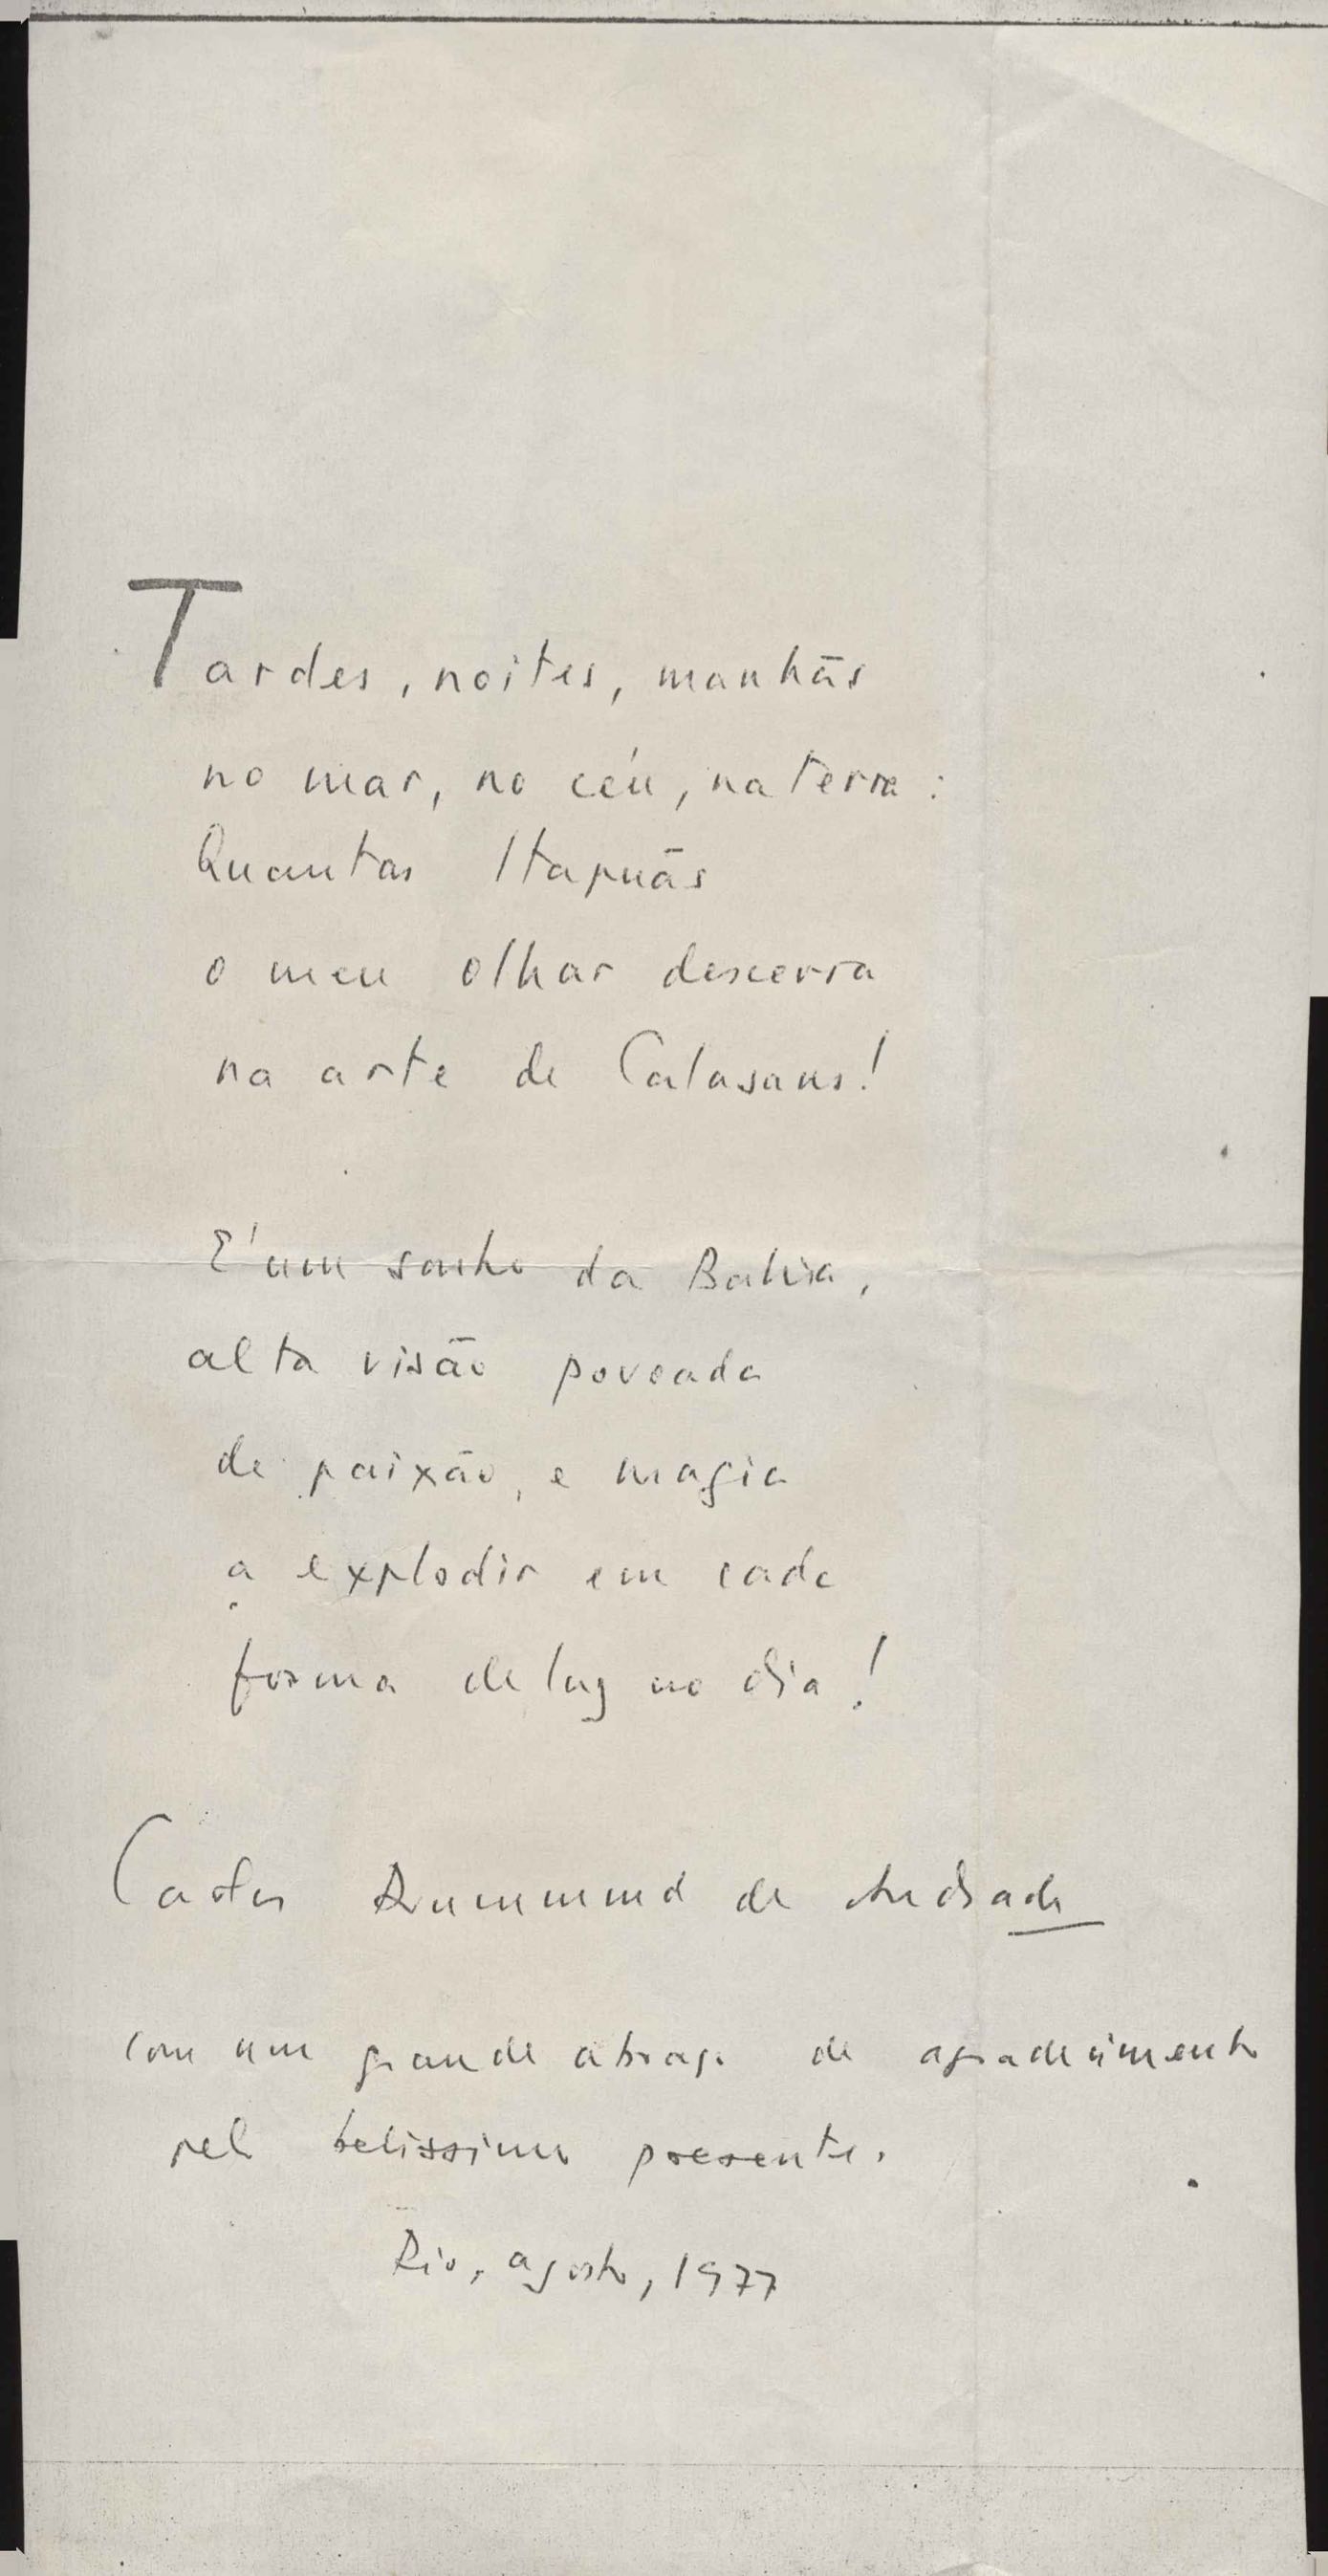 Tardes, noites, manhãs
no mar, no céu, na terra:
Quantas Itapuãs
o meu olhar descerra
na arte de Calasans!
É um sonho da Bahia,
alta visão povoada
de paixão, e magia
a explodir em cada
forma de luz no dia!
Carlos Drummond de Andrade
com um grande abraço de agradecimento
pelo belissimo presente.
Rio, agosto, 1977